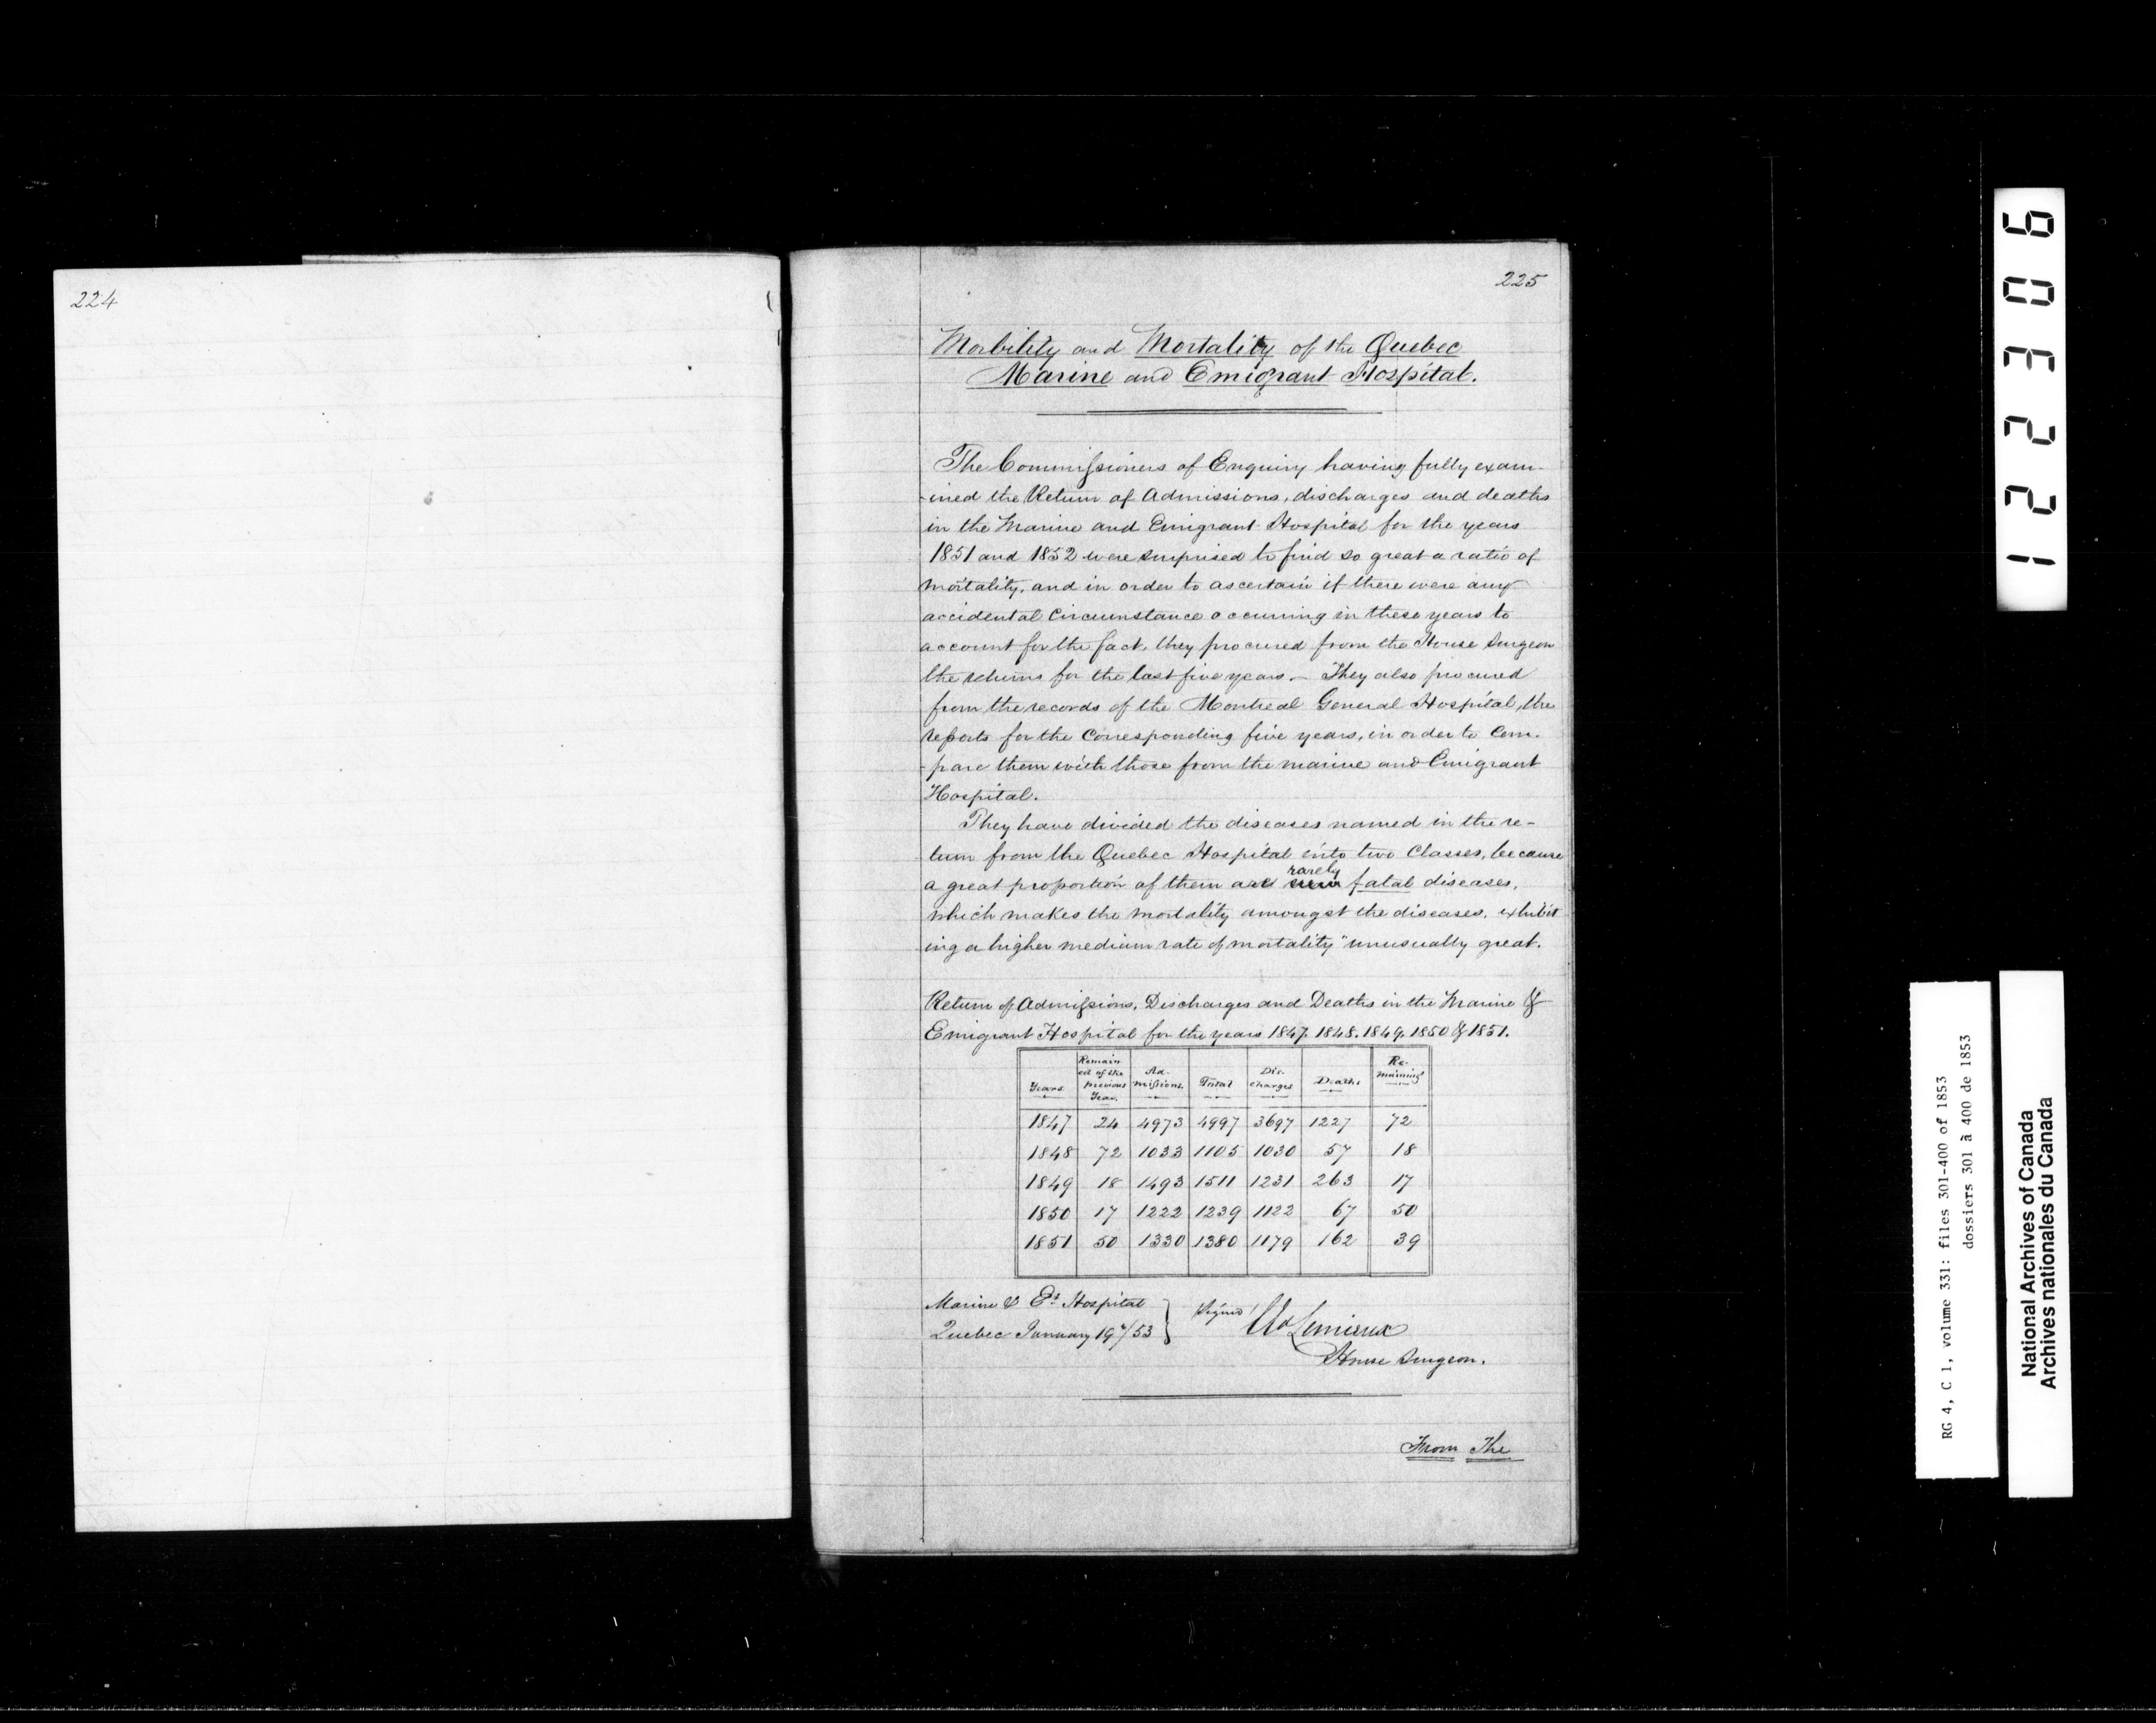 224
225
Morbility and Mortality of the Quebec
Marine and Emigrant Hospital.
The Commissioners of Enquiry having fully exam-
-ined the Return of Admissions, discharges and deaths
in the Marine and Emigrant Hospital for the years
1851 and 1852 were surprised to find so great a ratio of
mortality, and in order to ascertain if there were any
accidental Circumstance occurring in these years to
account for the fact, they procured from the House Surgeon
the returns for the last five years. – They also procured
from the records of the Montreal General Hospital, the
reports for the Corresponding five years, in order to Com-
-pare them with those from the marine and Emigrant
Hospital.
They have divided the diseases named in the re-
turn from the Quebec Hospital into two Classes, because
rarely
a great proportion of them are fatal diseases,
which makes the mortality amongst the diseases, exhibit
ing a higher medium rate of mortality "unusually great.
Return of Admissions, Discharges and Deaths in the Marine &
Emigrant Hospital for the years 1847. 1848. 1849. 1850 & 1851.
Years Remain ed of the previous Year. Ad- missions. Total Dis- charges Deaths Re- maining
1847 24 4973 4997 3697 1227 72
1848 72 1033 1105 1030 57 18
1849 18 1493 1511 1231 263 17
1850 17 1222 1239 1122 67 50
1851 50 1330 1380 1179 162 39
Marine & Et Hospital
Quebec January 19th/53
Signed Ed Lemieux
House Surgeon.
From The
122306
RG 4, C 1, volume 331: files 301-400 of 1853
dossiers 301 à 400 de 1853
National Archives of Canada
Archives nationales du Canada